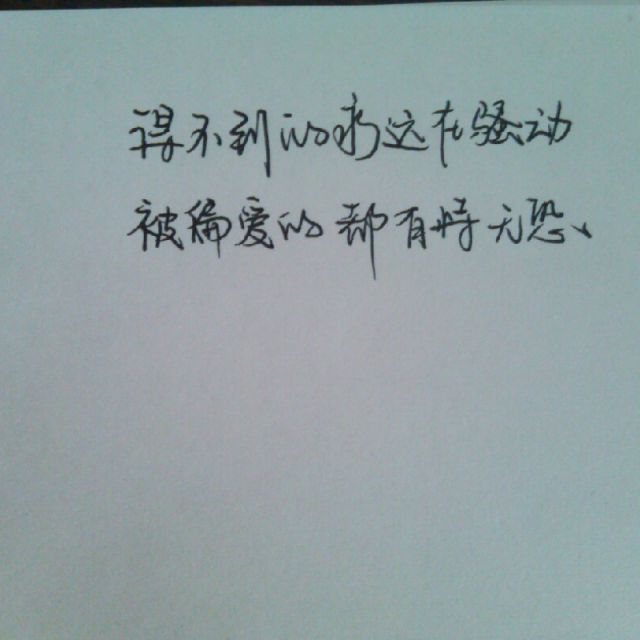 得不到的永远在骚动
被偏爱的都有恃无恐、